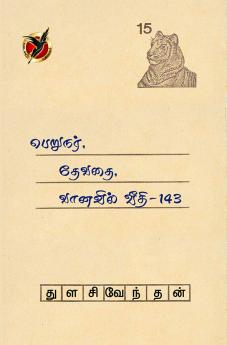 15
பெறுநர்,
தேவதை,
வானவில் வீதி-143
துளசிவேந்தன்